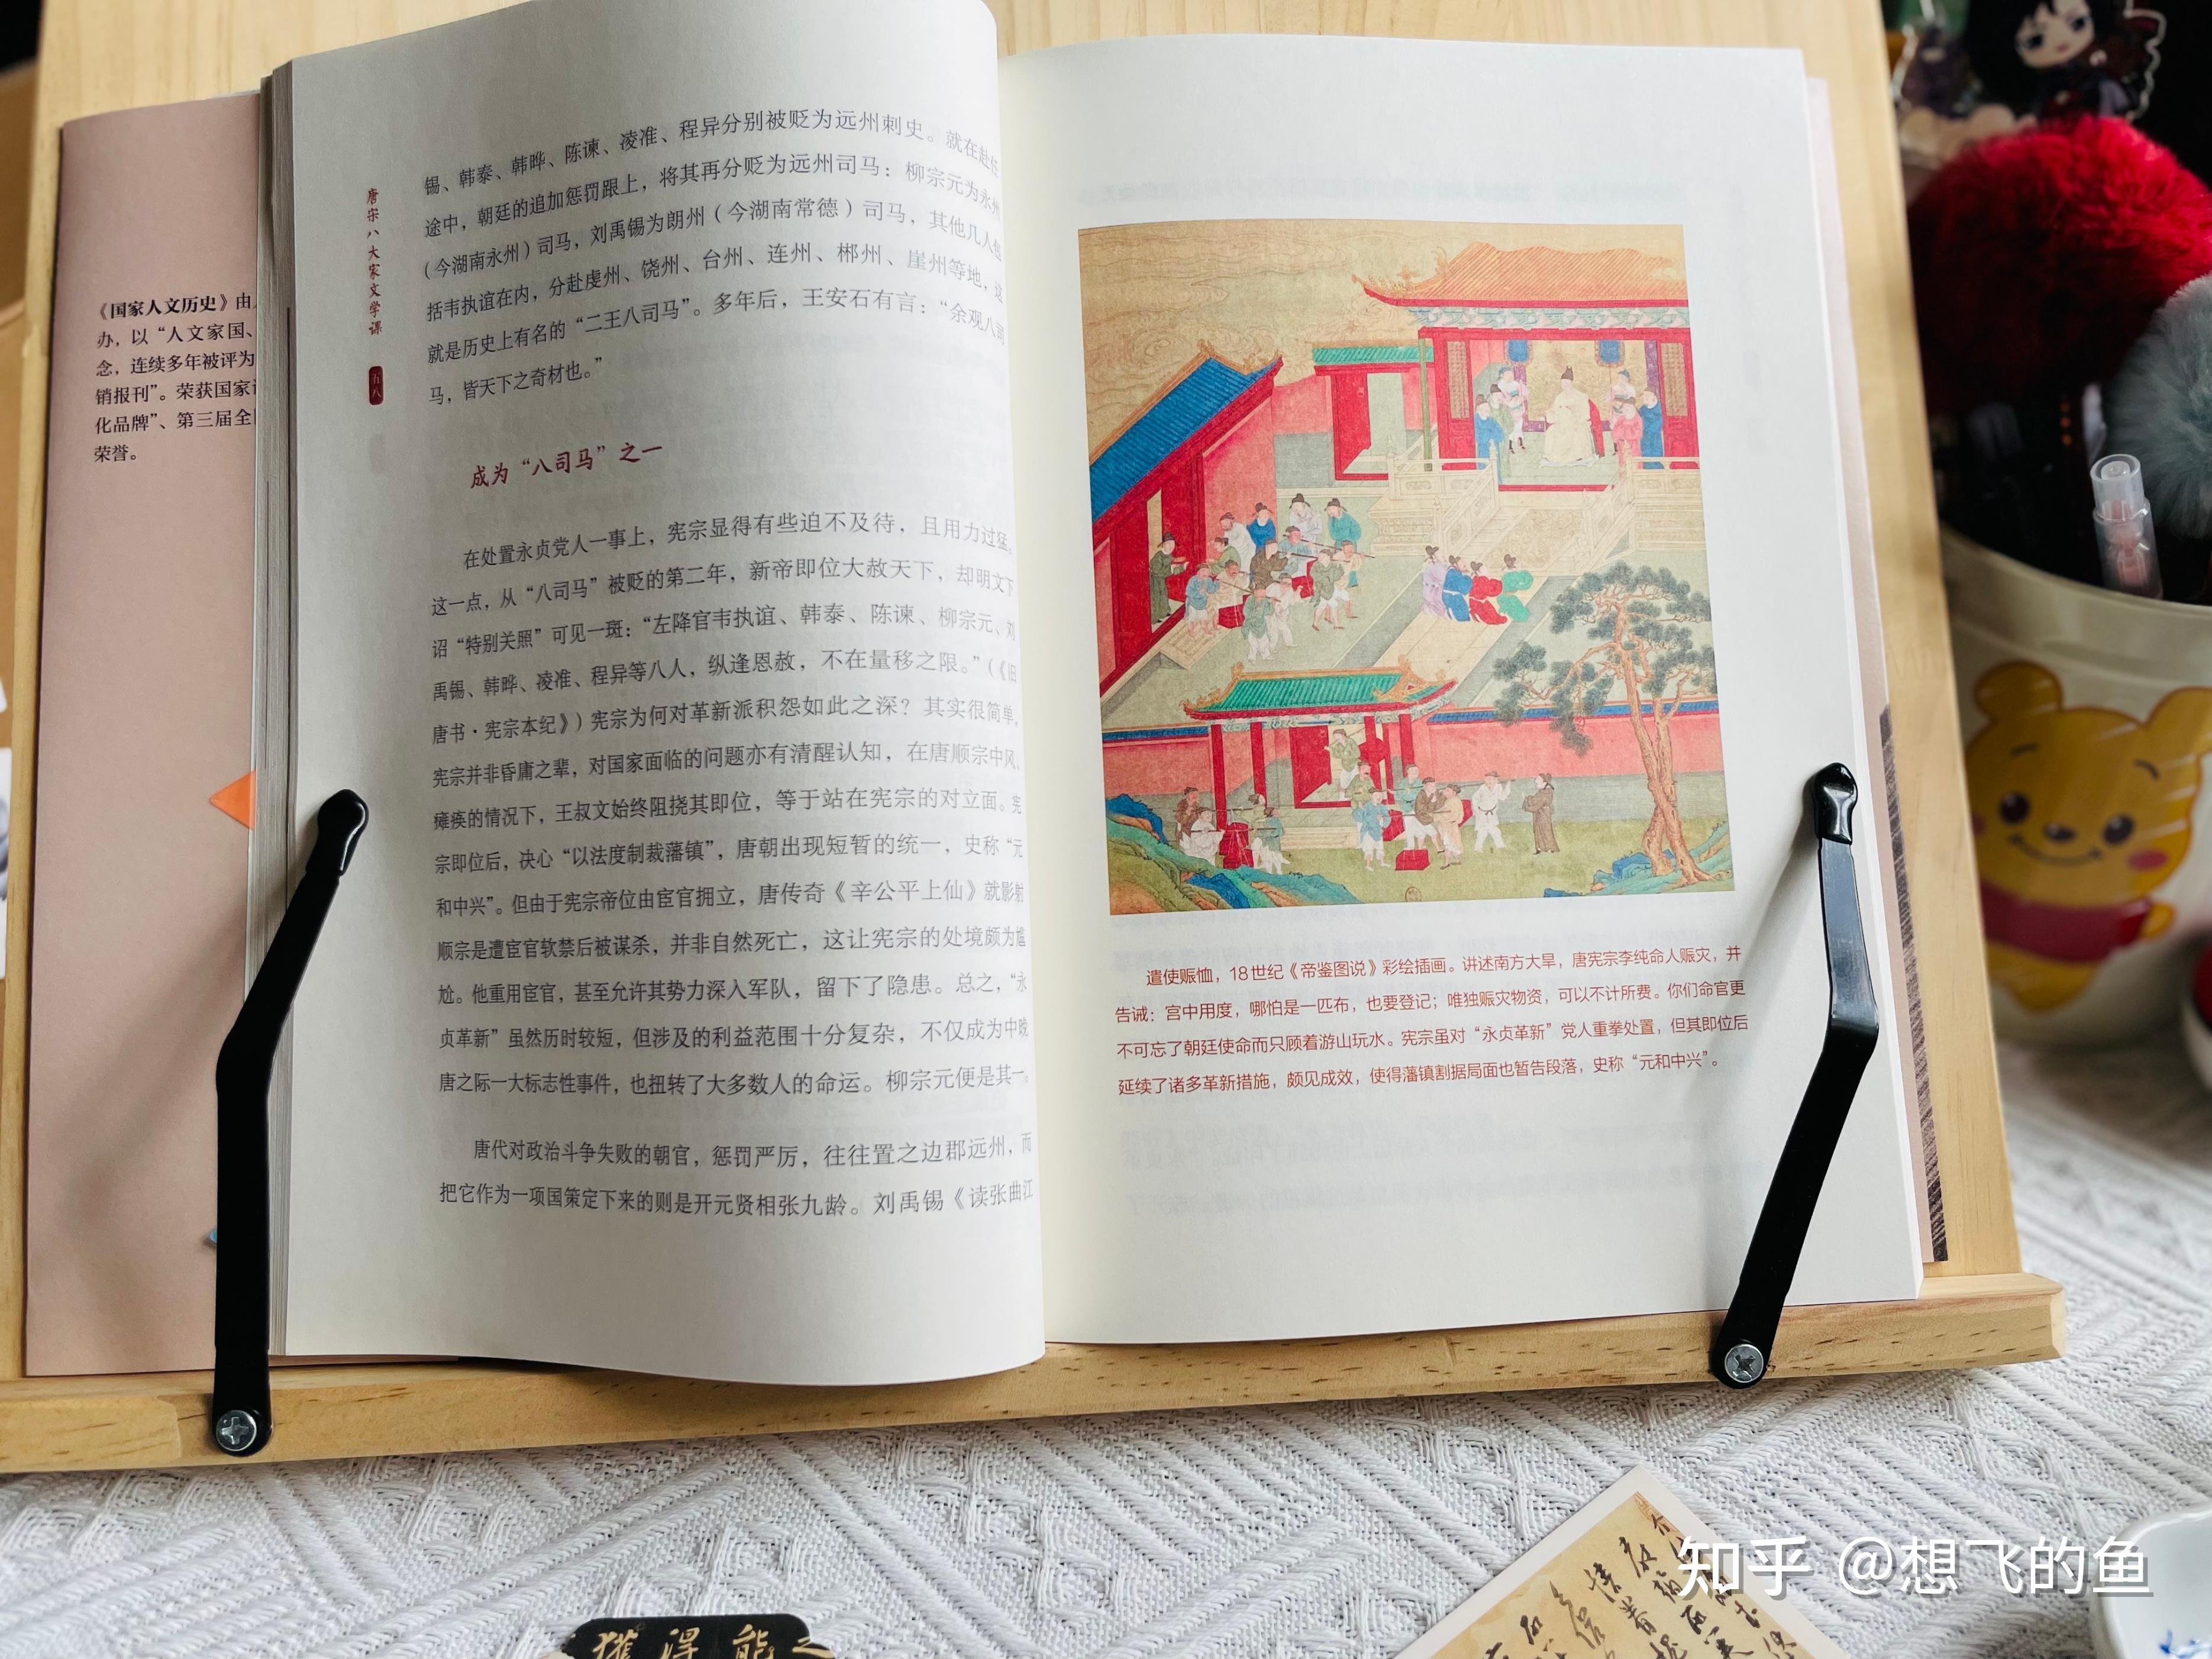 《国家人文历史》由
办，以“人文家国、
念，连续多年被评为
销报刊”。荣获国家
化品牌”、第三届全
荣誉。
唐宋八大家文学课
五八
锡、韩泰、韩晔、陈谏、凌准、程异分别被贬为远州刺史。就在赴任
途中，朝廷的追加惩罚跟上，将其再分贬为远州司马：柳宗元为永州
（今湖南永州）司马，刘禹锡为朗州（今湖南常德）司马，其他几人
括韦执谊在内，分赴虔州、饶州、台州、连州、郴州、崖州等地，这
就是历史上有名的“二王八司马”。多年后，王安石有言：“余观八司
马，皆天下之奇材也。”
成为“八司马”之一
在处置永贞党人一事上，宪宗显得有些迫不及待，且用力过猛。
这一点，从“八司马”被贬的第二年，新帝即位大赦天下，却明文下
诏“特别关照”可见一斑：“左降官韦执谊、韩泰、陈谏、柳宗元、刘
禹锡、韩晔、凌准、程异等八人，纵逢恩赦，不在量移之限。”（《旧
唐书·宪宗本纪》）宪宗为何对革新派积怨如此之深？其实很简单，
宪宗并非昏庸之辈，对国家面临的问题亦有清醒认知，在唐顺宗中风、
瘫痪的情况下，王叔文始终阻挠其即位，等于站在宪宗的对立面。宪
宗即位后，决心“以法度制裁藩镇”，唐朝出现短暂的统一，史称“元
和中兴”。但由于宪宗帝位由宦官拥立，唐传奇《辛公平上仙》就影射
顺宗是遭宦官软禁后被谋杀，并非自然死亡，这让宪宗的处境颇为尴
尬。他重用宦官，甚至允许其势力深入军队，留下了隐患。总之，“永
贞革新”虽然历时较短，但涉及的利益范围十分复杂，不仅成为中晚
唐之际一大标志性事件，也扭转了大多数人的命运。柳宗元便是其一。
唐代对政治斗争失败的朝官，惩罚严厉，往往置之边郡远州，而
把它作为一项国策定下来的则是开元贤相张九龄。刘禹锡《读张曲江
遣使赈恤，18世纪《帝鉴图说》彩绘插画。讲述南方大旱，唐宪宗李纯命人赈灾，并
告诫：宫中用度，哪怕是一匹布，也要登记；唯独赈灾物资，可以不计所费。你们命官更
不可忘了朝廷使命而只顾着游山玩水。宪宗虽对“永贞革新”党人重拳处置，但其即位后
延续了诸多革新措施，颇见成效，使得藩镇割据局面也暂告段落，史称“元和中兴”。
獲得能之
知乎 @想飞的鱼